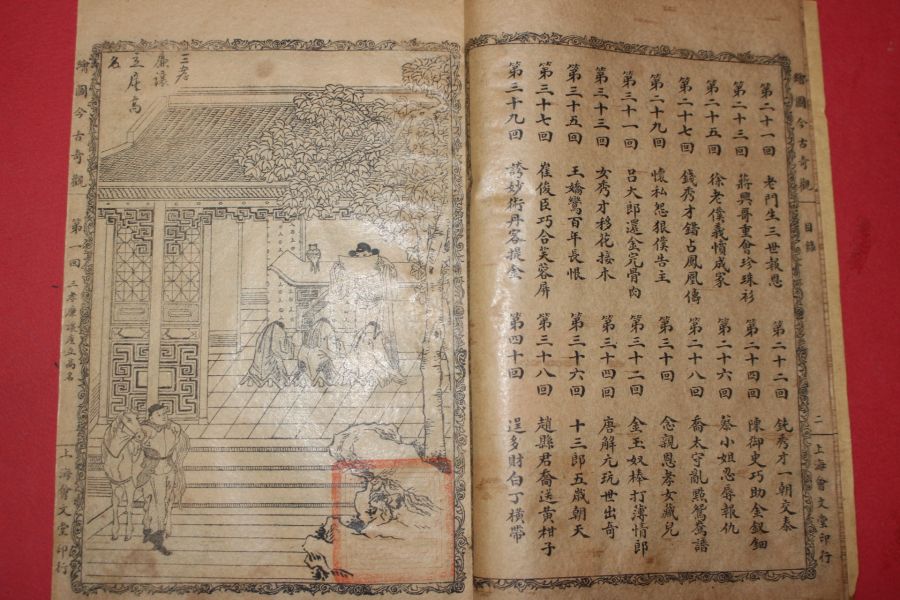 繪圖今古奇觀 目錄 二 上海會文堂印行
第二十一回 老門生三世報恩
第二十二回 鈍秀才一朝交泰
第二十三回 蔣興哥重會珍珠衫
第二十四回 陳御史巧助金釵鈿
第二十五回 徐老僕義憤成家
第二十六回 蔡小姐忍辱報仇
第二十七回 錢秀才錯占鳳凰儔
第二十八回 喬太守亂點鴛鴦譜
第二十九回 懷私怨狠僕告主
第三十回 念親恩孝女藏兒
第三十一回 呂大郎還金完骨肉
第三十二回 金玉奴棒打薄情郎
第三十三回 女秀才移花接木
第三十四回 唐解元玩世出奇
第三十五回 王嬌鸞百年長恨
第三十六回 十三郎五歲朝天
第三十七回 崔俊臣巧合芙蓉屏
第三十八回 趙縣君喬送黃柑子
第三十九回 誇妙術丹客提金
第四十回 逞多財白丁橫帶
三孝
廉讓
產立高
名
繪圖今古奇觀 第一回 三孝廉讓產立高名 上海會文堂印行